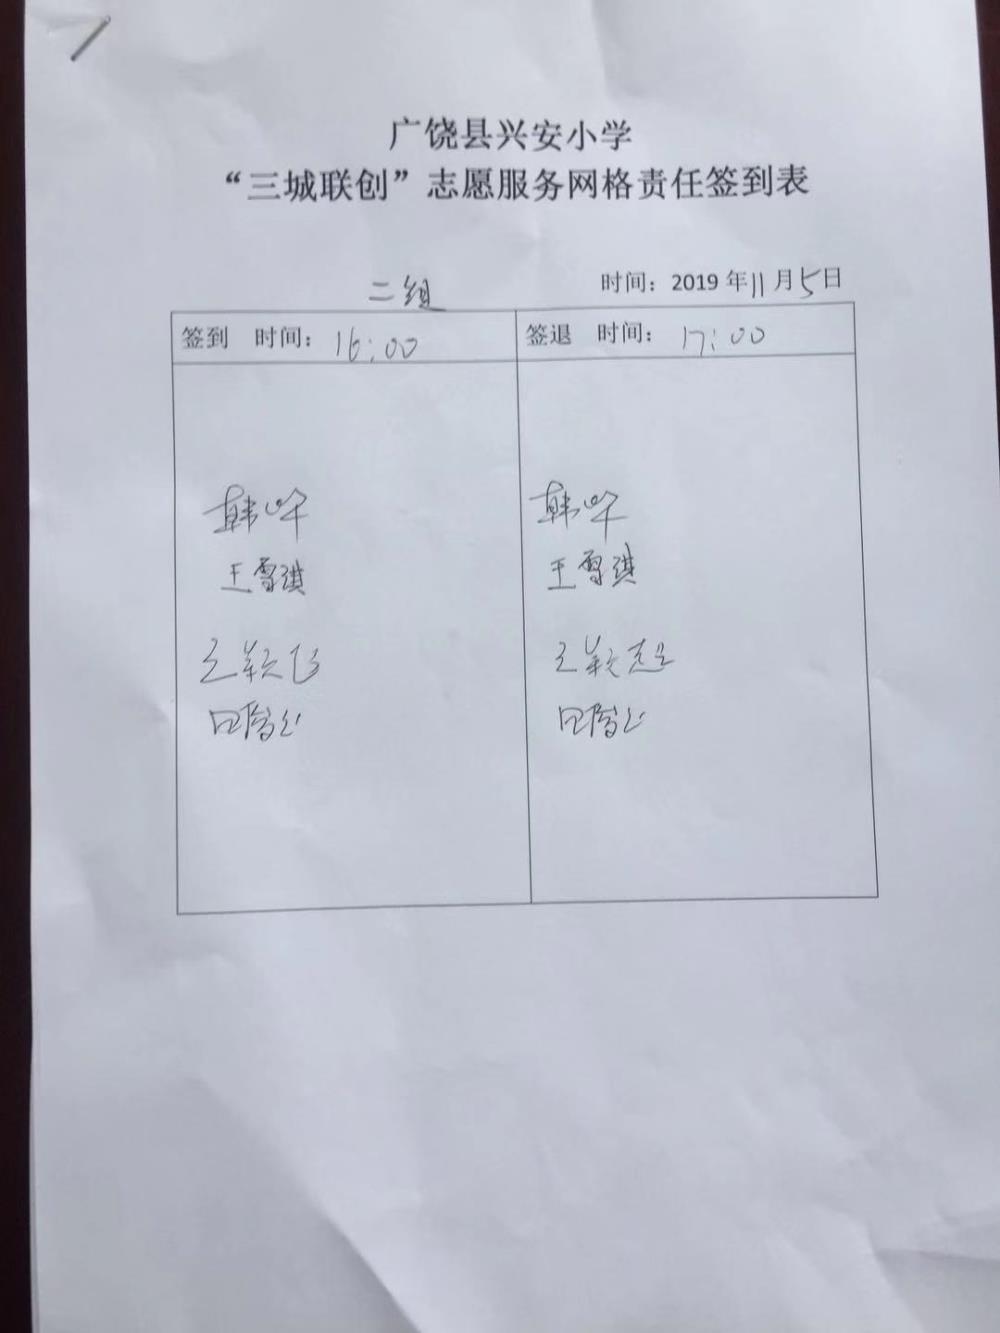 广饶县兴安小学
“三城联创”志愿服务网格责任签到表
二组 时间：2019年11月5日
签到 时间：16:00 签退 时间：17:00
韩 韩
王雪琪 王雪琪
王 王